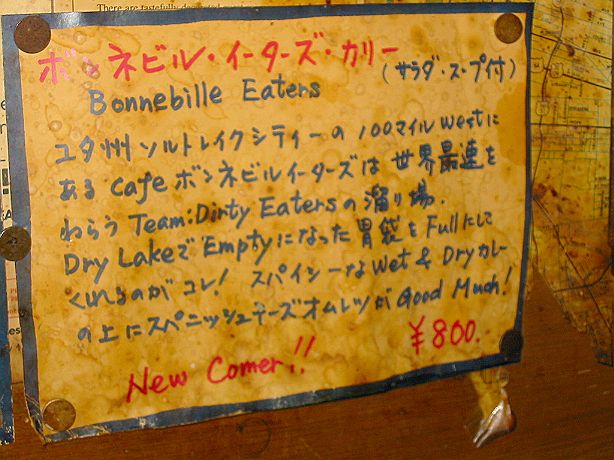 There are tastefully decorated
ボンネビル・イーターズ・カリー
(サラダ・スープ付)
Bonnebille Eaters
ユタ州 ソルトレイクシティーの 100マイル westに
ある cafe ボンネビルイーターズは 世界最速を
ねらう Team:Dirty Eatersの 溜り場.
Dry Lakeで Emptyになった 胃袋を Fullにして
くれるのが コレ! スパイシーな Wet & Dryカレー
の上に スペニッシュチーズオムレツが Good Much!
¥800.-
New Comer!!